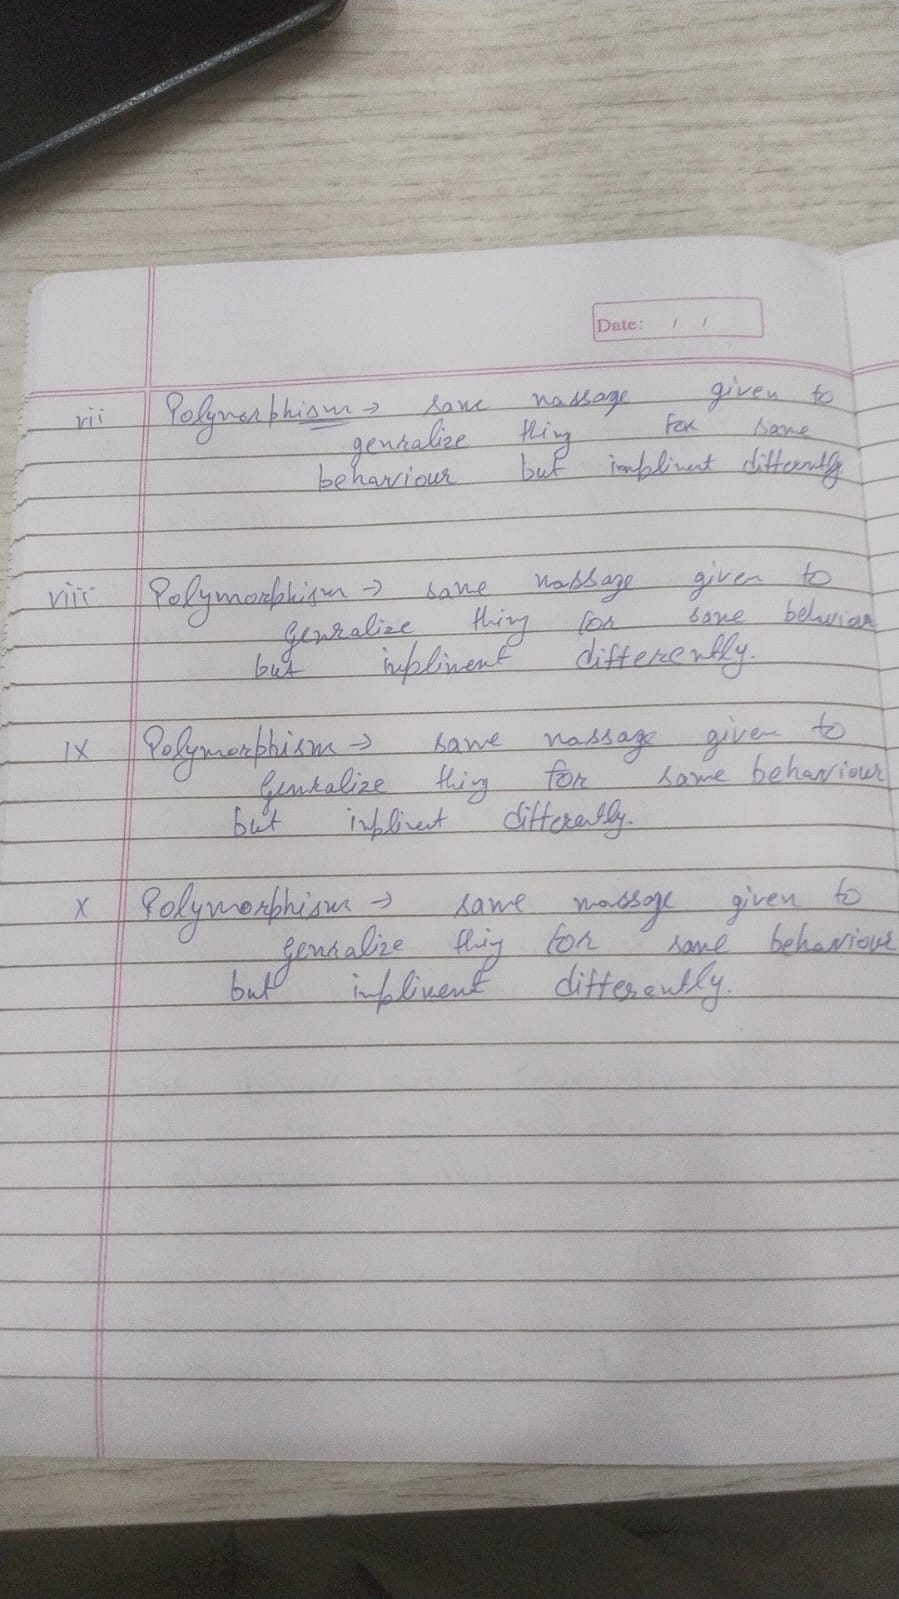 Date: / /
vii Polymorphism → same massage given to
genralize thing for same
behaviour but impliment differently
viii Polymorphism → same massage given to
genralize thing for same behaviour
but impliment differently.
ix Polymorphism → same massage given to
genralize thing for same behaviour
but impliment differently.
x Polymorphism → same massage given to
genralize thing for same behaviour
but impliment differently.